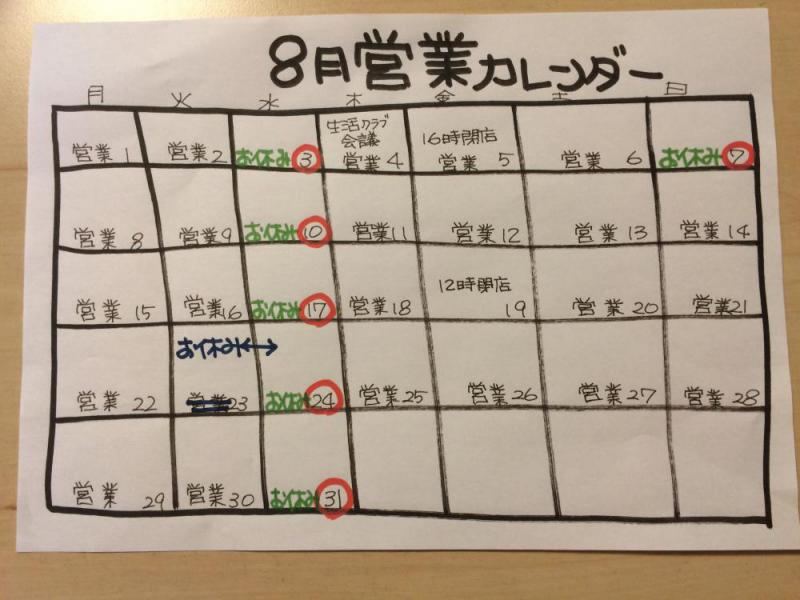 8月営業カレンダー
月 火 水 木 金 土 日
営業1 営業2 お休み3 生活クラブ会議 営業4 16時閉店 営業5 営業6 お休み7
営業8 営業9 お休み10 営業11 営業12 営業13 営業14
営業15 営業16 お休み17 営業18 12時閉店 19 営業20 営業21
お休み↔
営業22 営業23 お休み24 営業25 営業26 営業27 営業28
営業29 営業30 お休み31